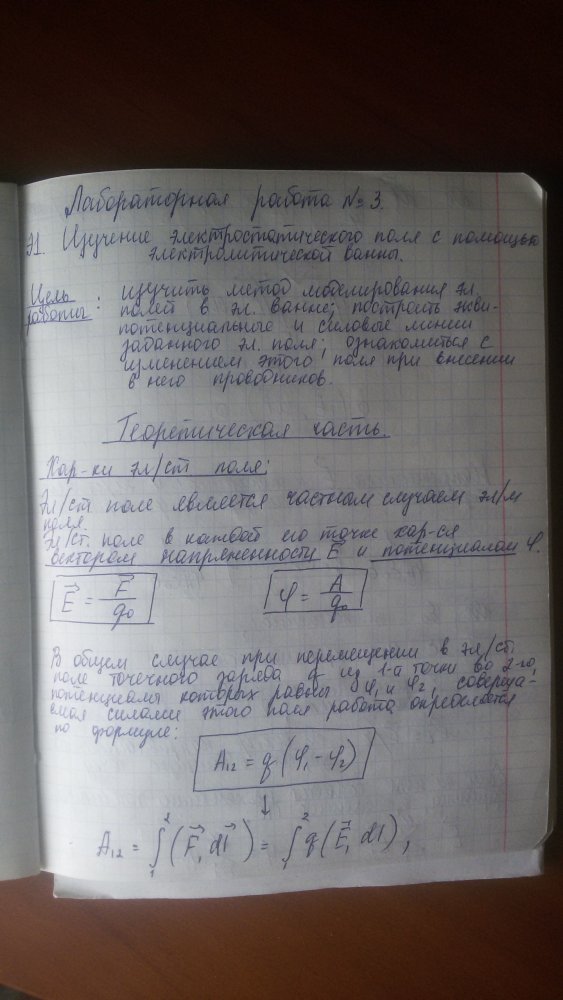 Лабораторная работа № 3.
Э1. Изучение электростатического поля с помощью
электролитической ванны.
Цель работы: изучить метод моделирования эл.
полей в эл. ванне; построить экви-
потенциальные и силовые линии
заданного эл. поля; ознакомиться с
изменением этого поля при внесении
в него проводников.
Теоретическая часть.
Хар-ки эл/ст поля:
Эл/ст поле является частным случаем эл/м
поля.
Эл/ст. поле в каждой его точке хар-ся
вектором напряженности E⃗ и потенциалом φ.
E⃗ = F⃗/q₀ φ = A/q₀
В общем случае при перемещении в эл/ст.
поле точечного заряда q из 1-й точки во 2-го,
потенциалы которых равны φ₁ и φ₂, соверша-
емая силами этого поля работа определяется
по формуле:
A₁₂ = q(φ₁-φ₂)
↓
A₁₂ = ∫₁² (F⃗, dl⃗) = ∫₁² q(E⃗, dl),